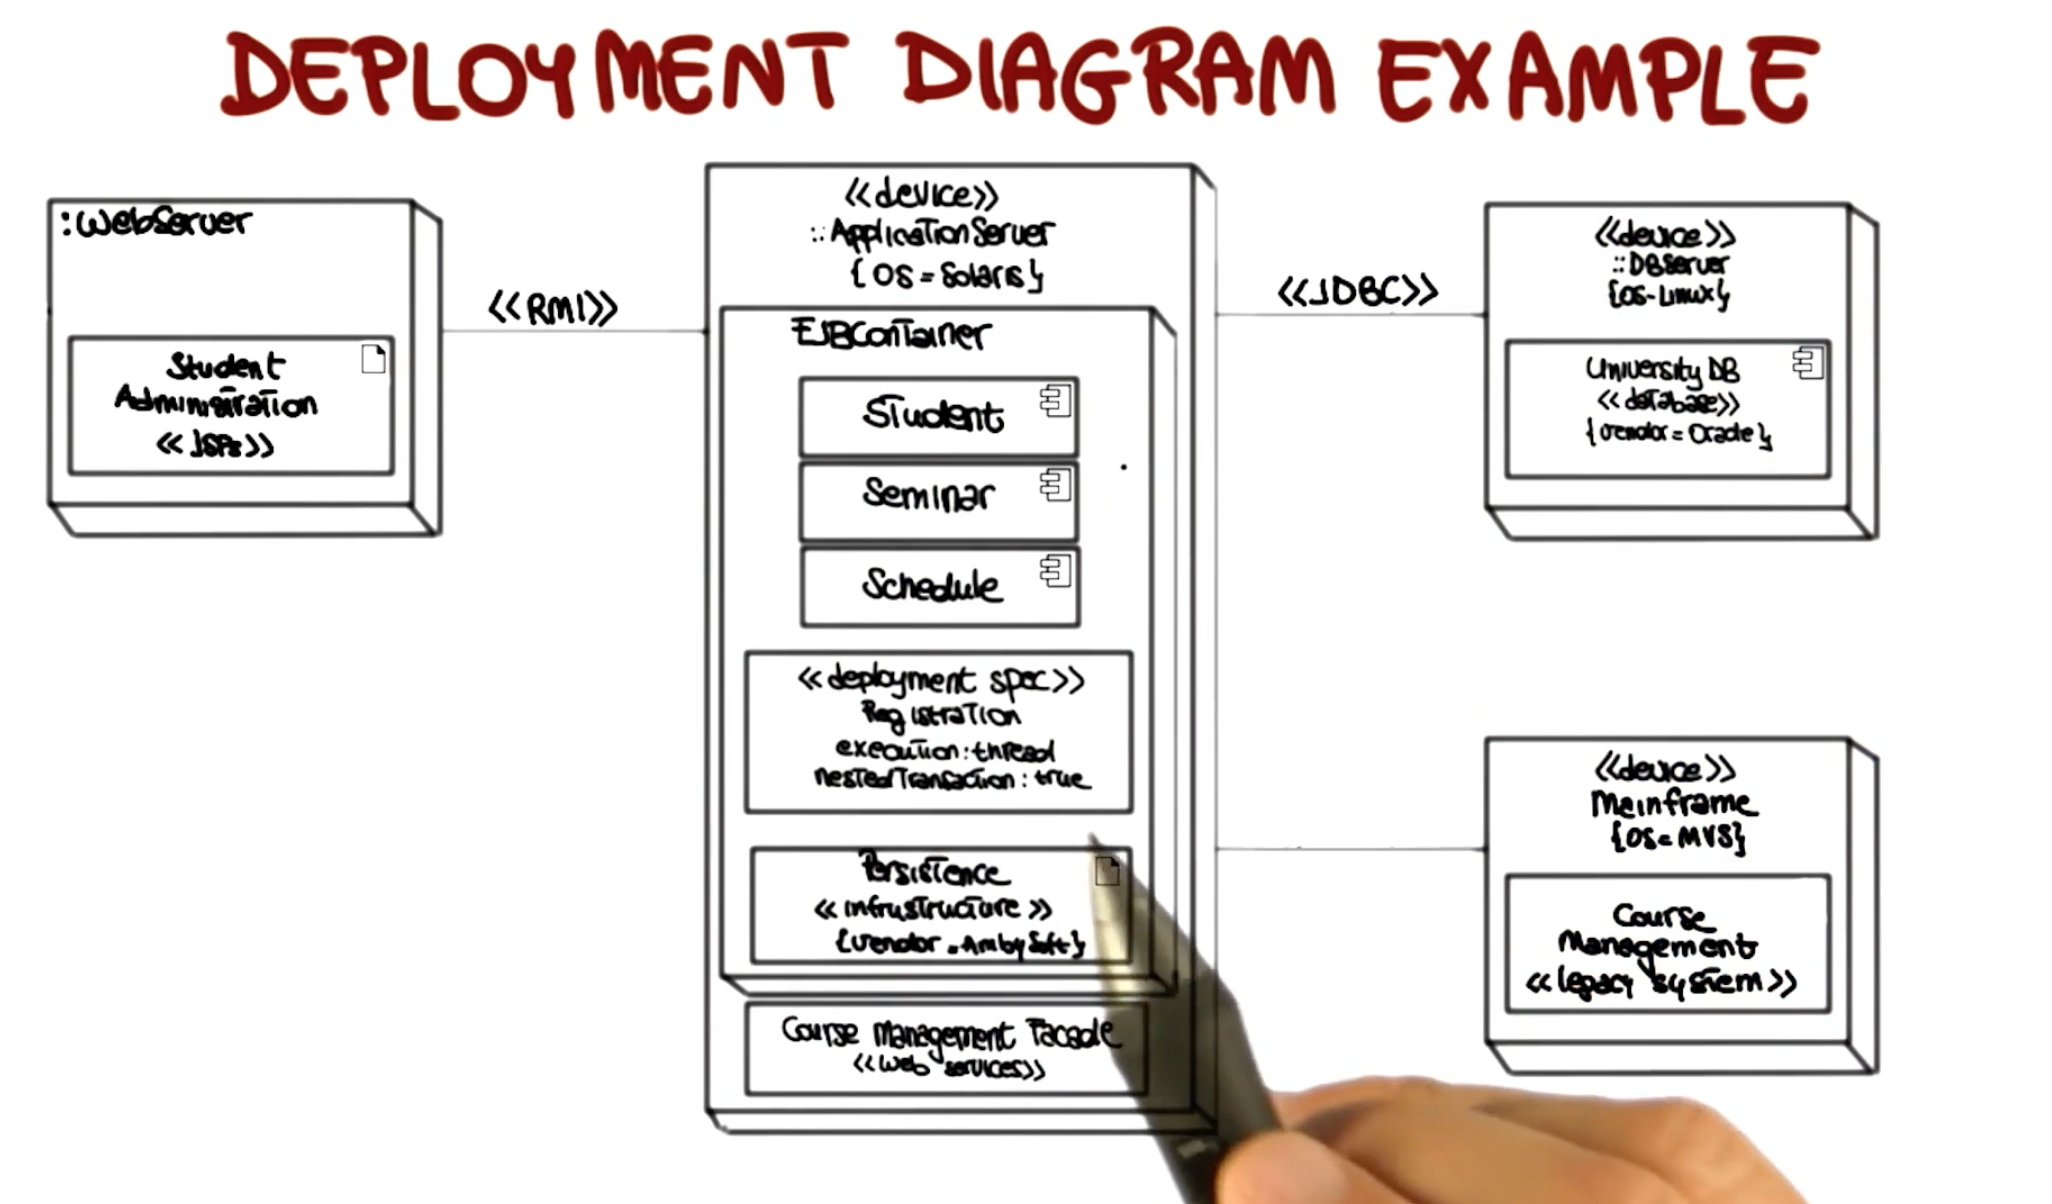 DEPLOYMENT DIAGRAM EXAMPLE
:WebServer
Student
Administration
<<JSPs>>
<<RMI>>
<<device>>
::ApplicationServer
{OS=Solaris}
EJBContainer
Student
Seminar
Schedule
<<deployment spec>>
Registration
execution:thread
nestedTransaction:true
Persistence
<<infrastructure>>
{vendor=AmbySoft}
Course Management Facade
<<web services>>
<<JDBC>>
<<device>>
::DBServer
{OS-Linux}
University DB
<<database>>
{vendor=Oracle}
<<device>>
Mainframe
{OS=MVS}
Course
Management
<<legacy system>>